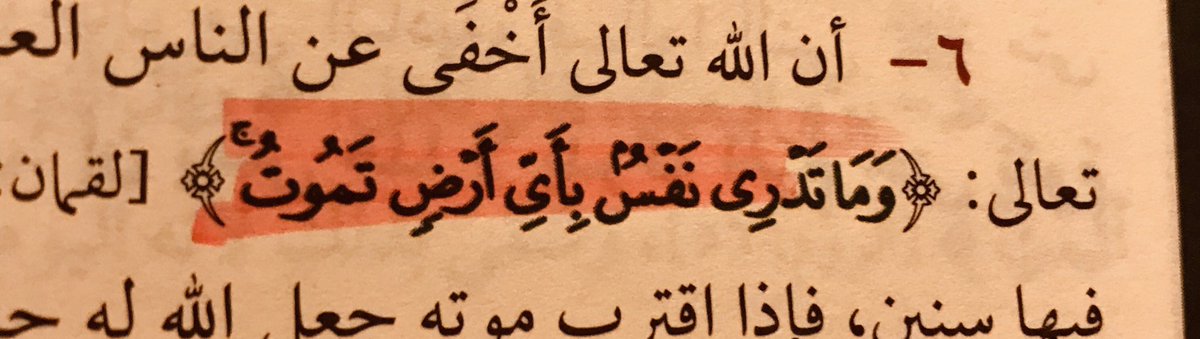 ٦ – أن الله تعالى أَخْفَى عن الناس
تعالى: ﴿وَمَا تَدْرِى نَفْسٌۢ بِأَىِّ أَرْضٍ تَمُوتُ ۚ﴾ [لقمان:
فيها سنين، فإذا اقترب موته جعل الله له